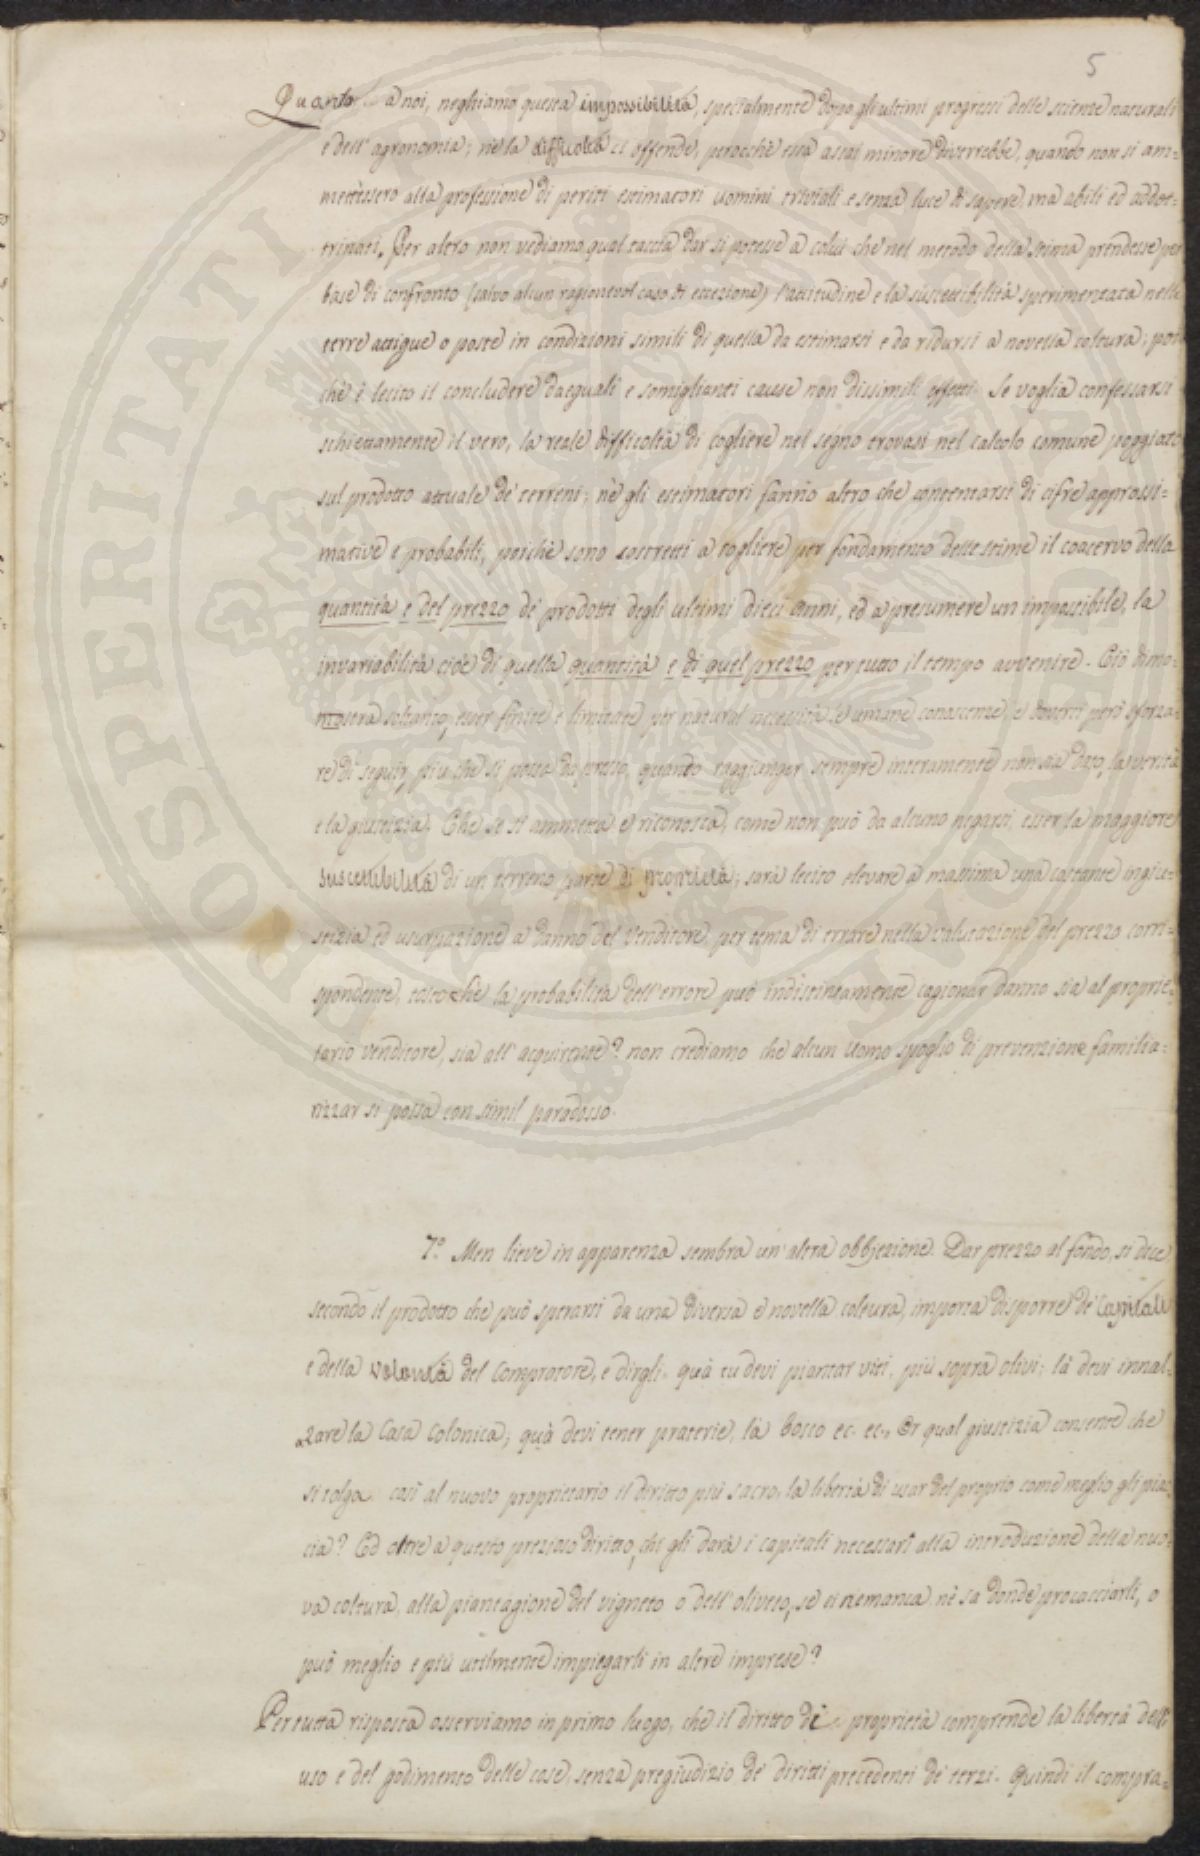 5
Quanto a noi, neghiamo questa impossibilità, specialmente dopo gli ultimi progressi delle scienze naturali
e dell'agronomia; nè la difficoltà ci offende, perocchè essa assai minore diverrebbe, quando non si am=
mettessero alla professione di periti estimatori uomini triviali e senza luce di sapere, ma abili ed addot=
trinati. Per altro non vediamo qual taccia dar si potesse a colui che nel metodo della stima prendesse per
base di confronto (salvo alcun ragionevol caso di eccezione) l'attitudine e la suscettibilità sperimentata nelle
terre attigue o poste in condizioni simili di quella da estimarsi e da ridursi a novella coltura; poi
chè è lecito il concludere da eguali e somiglianti cause non dissimili effetti. Se voglia confessarsi
schiettamente il vero, la reale difficoltà di cogliere nel segno trovasi nel calcolo comune poggiato
sul prodotto attuale de' terreni; nè gli estimatori fanno altro che contentarsi di cifre approssi=
mative e probabili, poichè sono costretti a togliere per fondamento delle stime il coacervo della
quantità e del prezzo de' prodotti degli ultimi dieci anni, ed a presumere un impossibile, la
invariabilità cioè di quella quantità e di quel prezzo per tutto il tempo avvenire. Ciò dimo=
stra soltanto, esser finite e limitate per natural necessità le umane conoscenze, e doverci però sforza=
re di seguir, più che si possa da presso, quando raggiunger sempre interamente non sia dato, la verità
e la giustizia. Che se si ammetta e riconosca, come non può da alcuno negarsi, esser la maggiore
suscettibilità di un terreno parte di proprietà; sarà lecito elevare a massima una costante ingiu=
stizia ed usurpazione a danno del Venditore, per tema di errare nella valutazione del prezzo corri=
spondente, tostochè la probabilità dell'errore può indistintamente cagionar danno sia al proprie=
tario venditore, sia all'acquirente? non crediamo che alcun Uomo spoglio di prevenzione familia=
rizzar si possa con simil paradosso.
7.° Men lieve in apparenza sembra un'altra obbjezione. Dar prezzo al fondo, si dice,
secondo il prodotto che può sperarsi da una diversa e novella coltura, importa disporre de' Capitali
e della volontà del Compratore, e dirgli. quà tu devi piantar viti, più sopra olivi; là devi innal=
zare la Casa Colonica; quà devi tener praterie, là bosco ec. ec., Or qual giustizia consente che
si tolga così al nuovo proprietario il diritto più sacro, la libertà di usar del proprio come meglio gli piac=
cia? Ed oltre a questo prezioso diritto, chi gli darà i capitali necessarî alla introduzione della nuo=
va coltura, alla piantagione del vigneto o dell'oliveto, se ei ne manca nè sa donde procacciarli, o
può meglio e più utilmente impiegarli in altre imprese?
Per tutta risposta osserviamo in primo luogo, che il diritto di proprietà comprende la libertà dell'
uso e del godimento delle cose, senza pregiudizio de' diritti precedenti de' terzi. Quindi il compra=